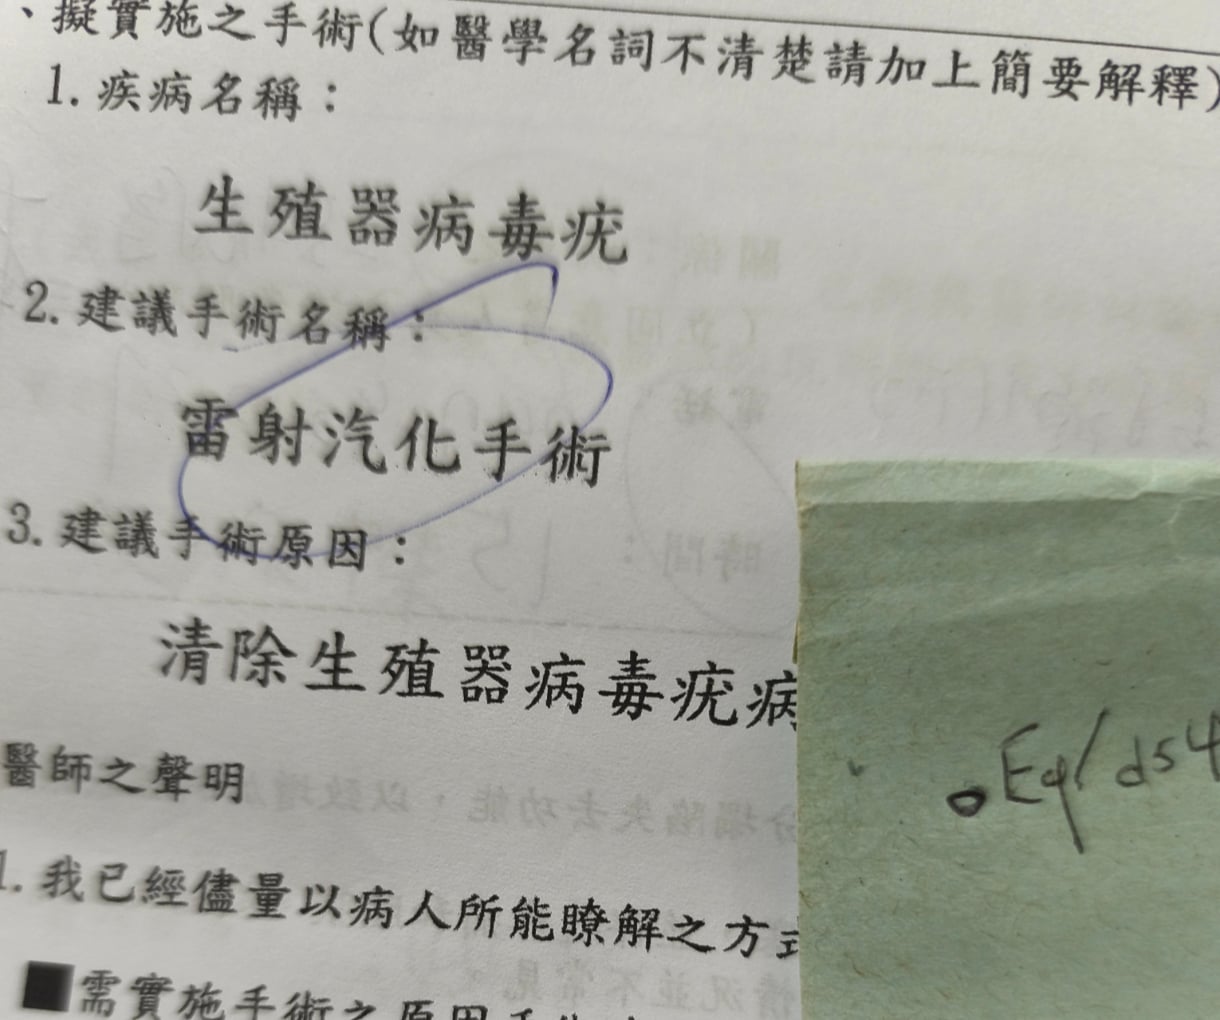 、擬實施之手術(如醫學名詞不清楚請加上簡要解釋)
1.疾病名稱：
生殖器病毒疣
2.建議手術名稱：
雷射汽化手術
3.建議手術原因：
清除生殖器病毒疣病
醫師之聲明
1.我已經儘量以病人所能瞭解之方式
■需實施手術之原因